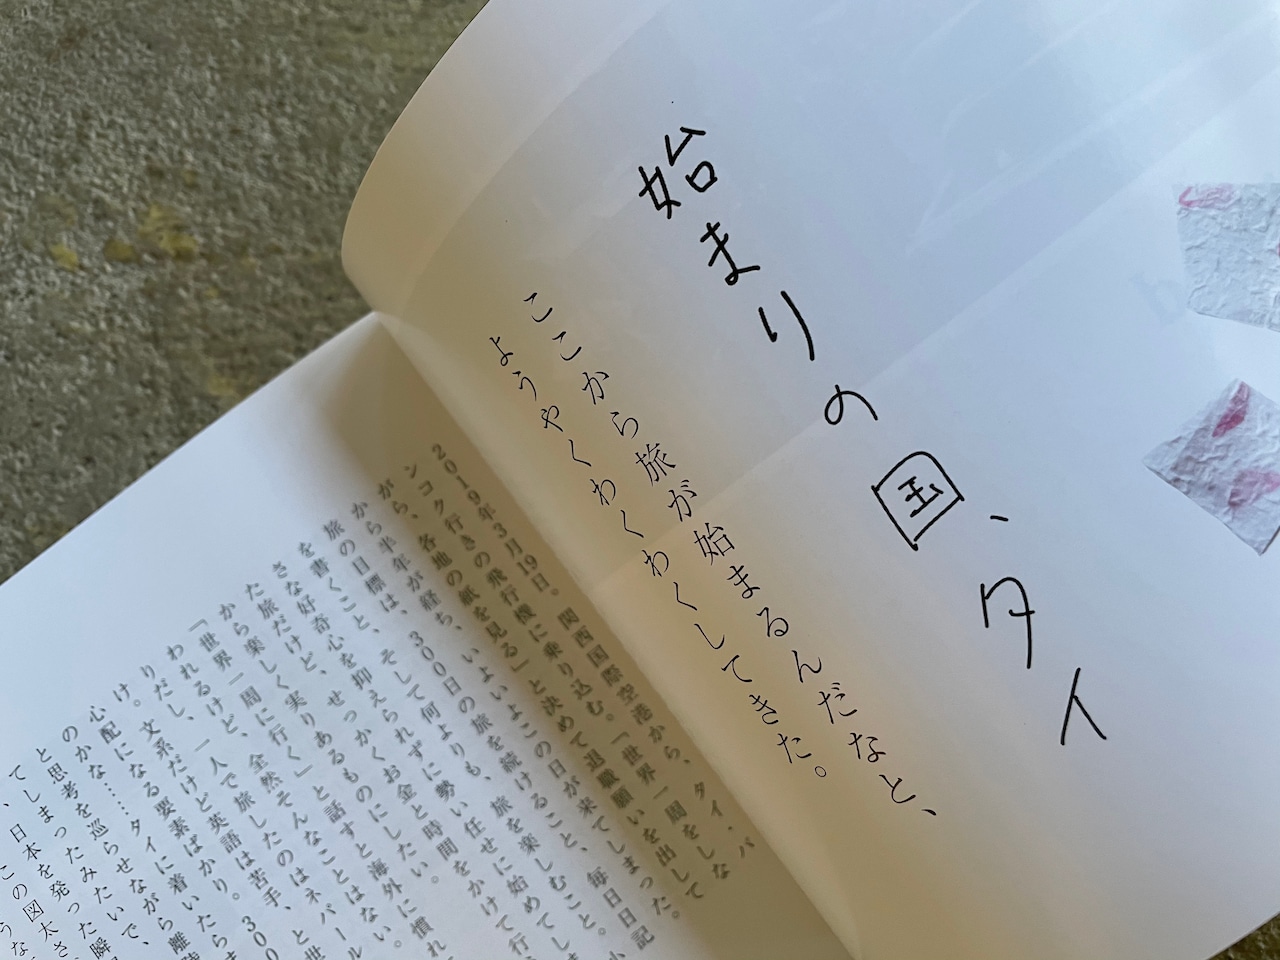 始まりの国、タイ
ここから旅が始まるんだなと、
ようやくわくわくしてきた。
2019年3月19日。関西国際空港から、タイ・バ
ンコク行きの飛行機に乗り込む。「世界一周をしな
がら、各地の紙を見る」と決めて退職願いを出して
から半年が経ち、いよいよこの日が来てしまった。
旅の目標は、300日の旅を続けること、毎日日記
を書くこと、そして何よりも、旅を楽しむこと。小
さな好奇心を抑えられずに勢い任せに始めてしま
た旅だけど、せっかくお金と時間をかけて行
から楽しく実りあるものにしたい。
「世界一周に行く」と話すと海外に慣れ
われるけど、全然そんなことはない。
りだし、一人で旅したのはネパール
け。文系だけど英語は苦手、と世
心配になる要素ばかり。300
のかな……タイに着いたらま
と思考を巡らせながら離陸
てしまったみたいで、
、日本を発った瞬
この図太さ
うな